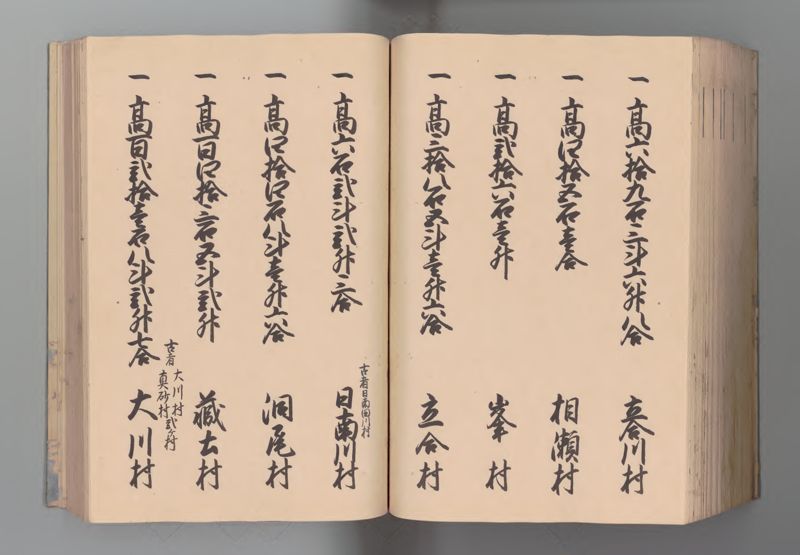 一 高六拾九石三斗六升八合 立合川村
一 高四拾五石壱合 相瀬村
一 高弐拾六石壱升 峯村
一 高三拾八石五斗壱升六合 立合村
一 高六石弐斗弐升三合 古者日南田川村 日南川村
一 高四拾四石八斗壱升六合 洞尾村
一 高百四拾三石五斗弐升 蔵土村
一 高百弐拾壱石八斗弐升七合 古者 大川村 真砂村 弐ヶ村 大川村